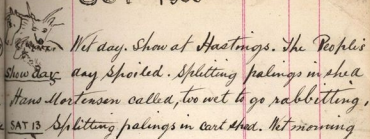 Wet day. Show at Hastings. The People's
Show day day Spoiled. Splitting palings in shed
Hans Mortensen called, too wet to go rabbitting.
SAT 13 Splitting palings in cart shed. Wet morning